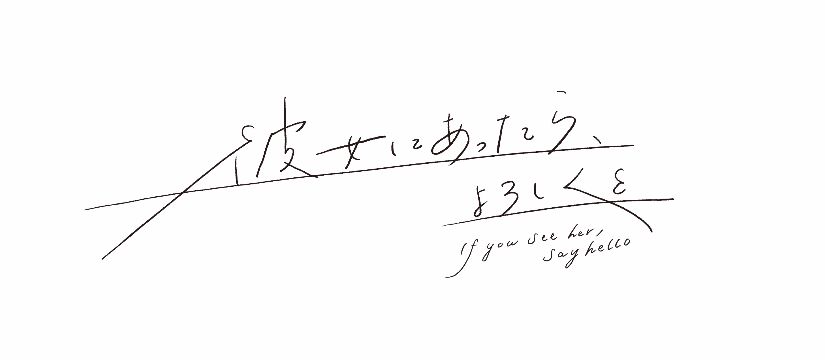 彼女にあったら、
よろしくと
If you see her,
say hello